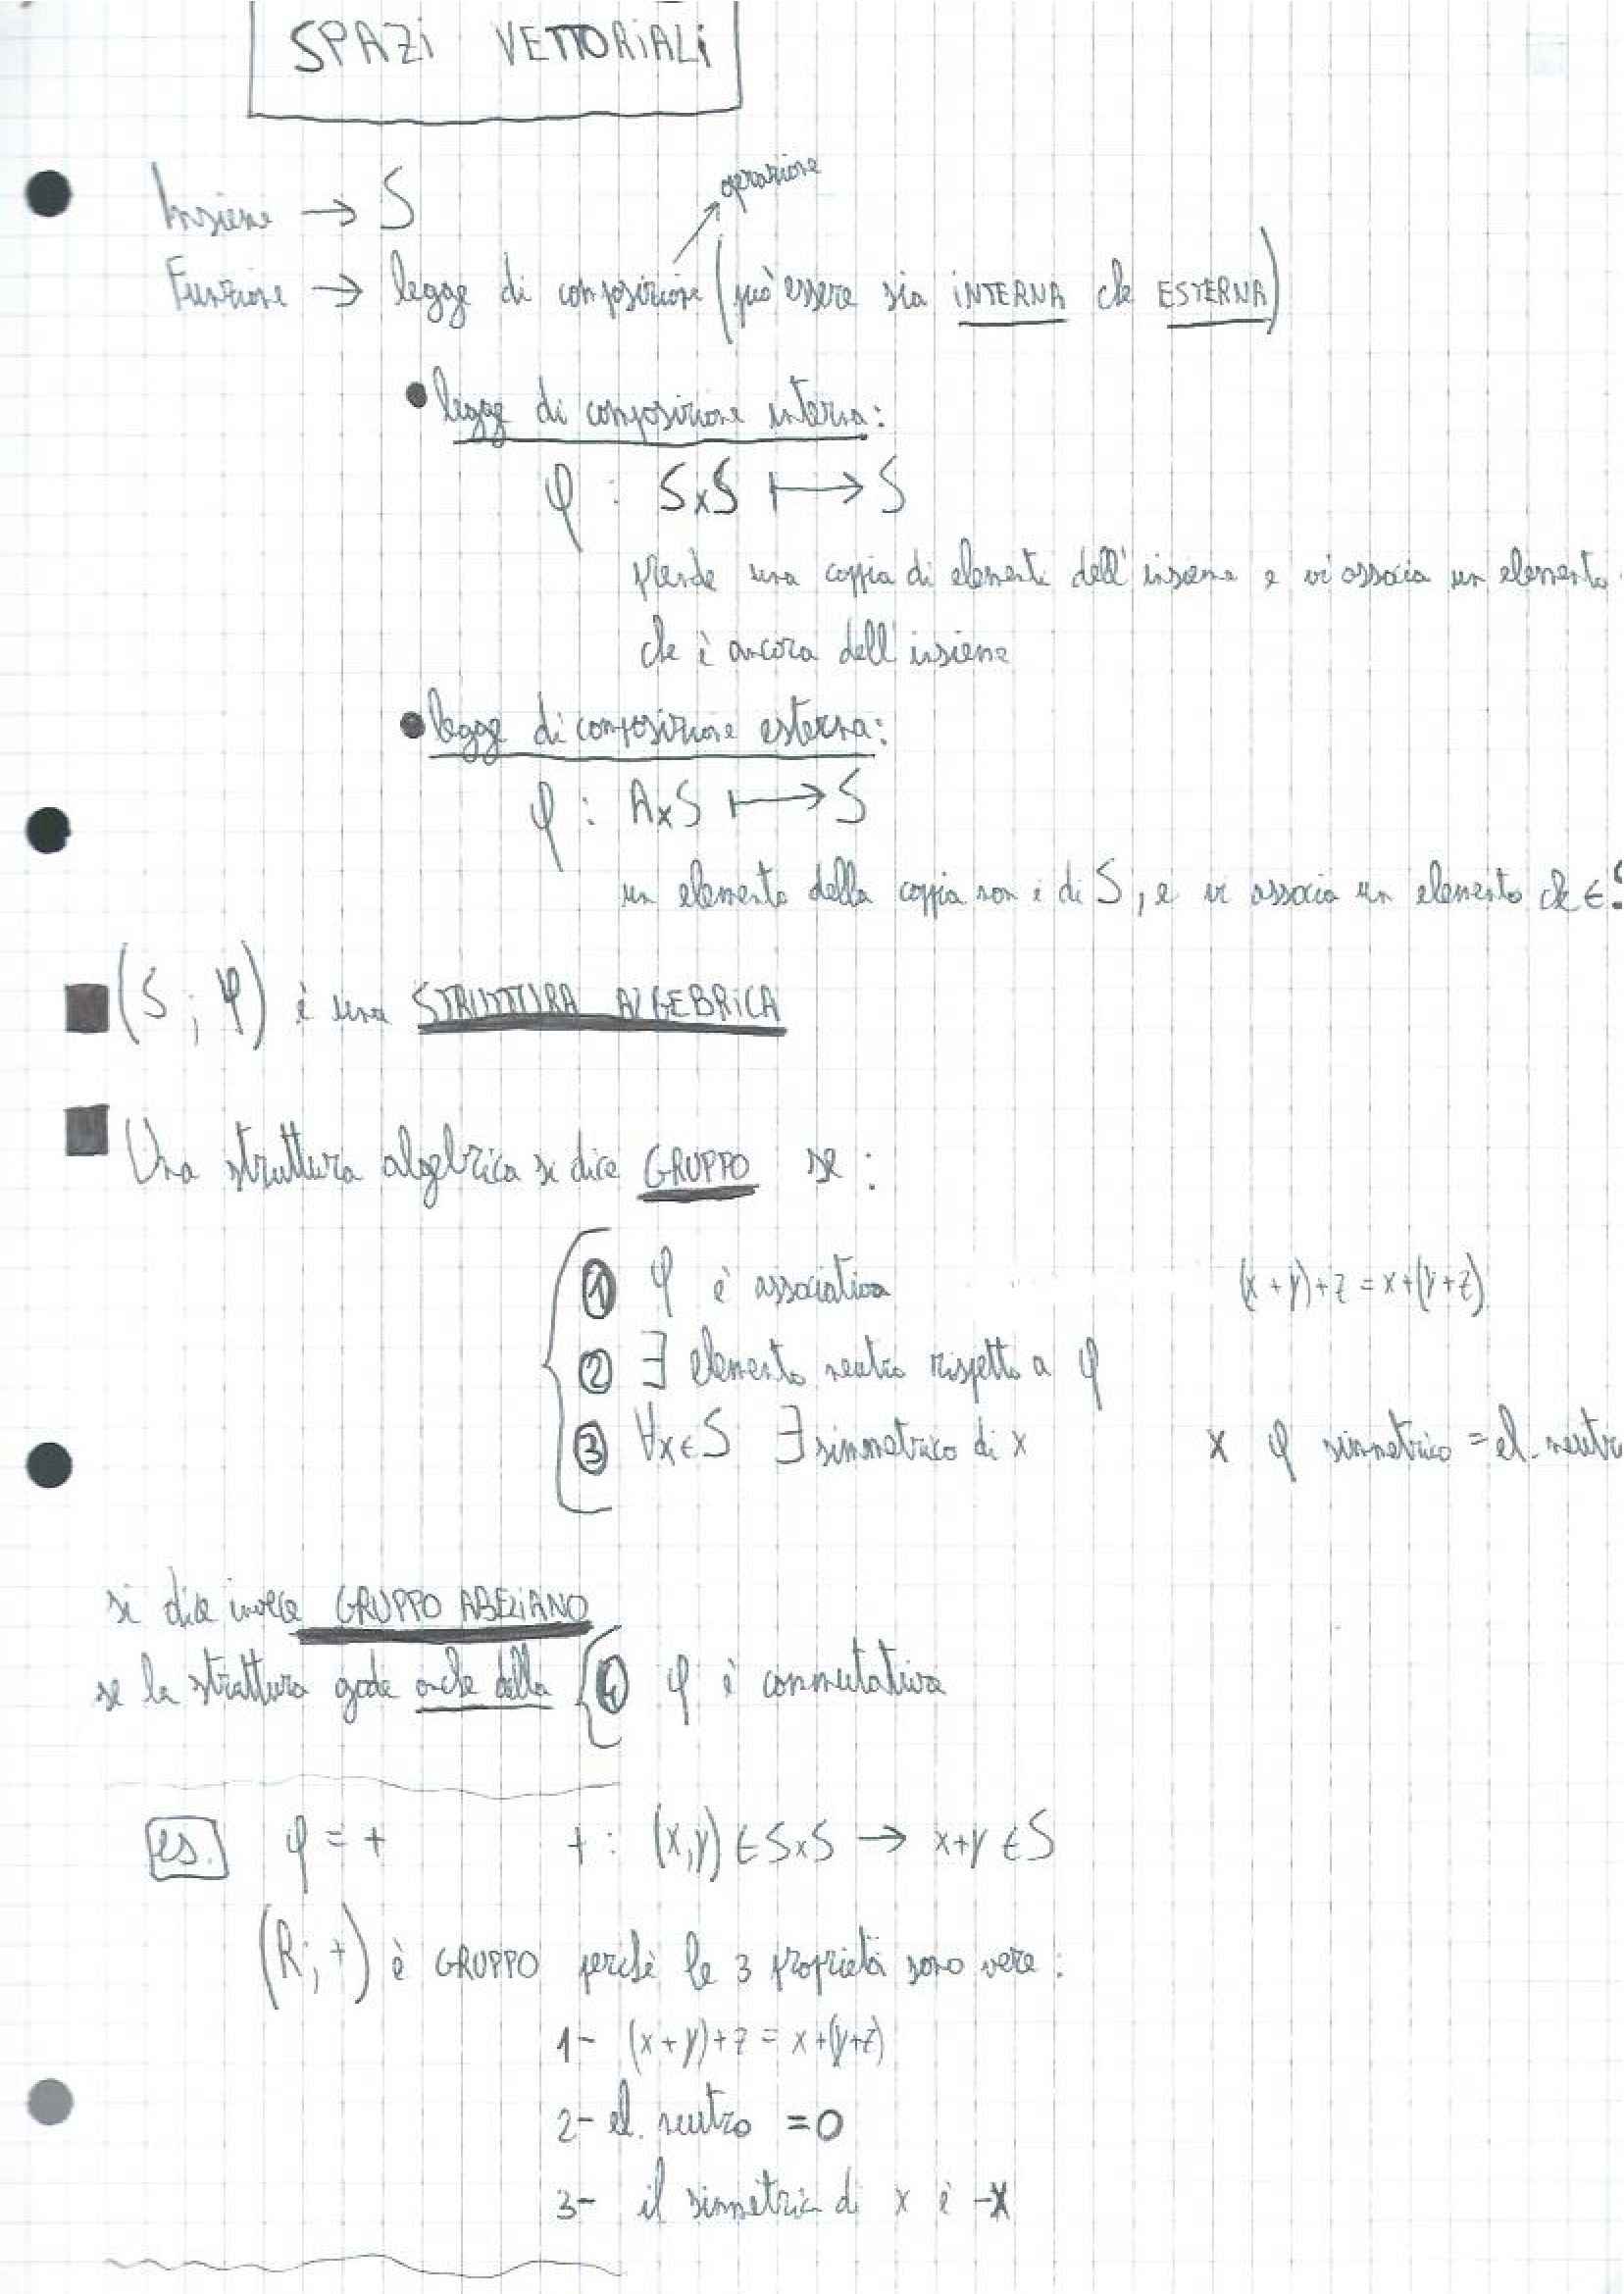 SPAZI VETTORIALI
operazione
Insieme → S
Funzione → legge di composizione (può essere sia INTERNA che ESTERNA)
• legge di composizione interna:
φ : S×S ⟼ S
prende una coppia di elementi dell'insieme e vi associa un elemento
che è ancora dell'insieme
• legge di composizione esterna:
φ : A×S ⟼ S
un elemento della coppia non è di S, e vi associa un elemento che ∈ S
■ (S ; φ) è una STRUTTURA ALGEBRICA
■ Una struttura algebrica si dice GRUPPO se :
① φ è associativa (x + y) + z = x + (y + z)
② ∃ elemento neutro rispetto a φ
③ ∀x ∈ S ∃ simmetrico di x x φ simmetrico = el. neutr
si dice invece GRUPPO ABELIANO
se la struttura gode anche della ④ φ è commutativa
es. φ = + + : (x,y) ∈ S×S → x+y ∈ S
(R ; +) è GRUPPO perchè le 3 proprietà sono vere :
1- (x + y) + z = x + (y+z)
2- el. neutro = 0
3- il simmetrico di x è -x